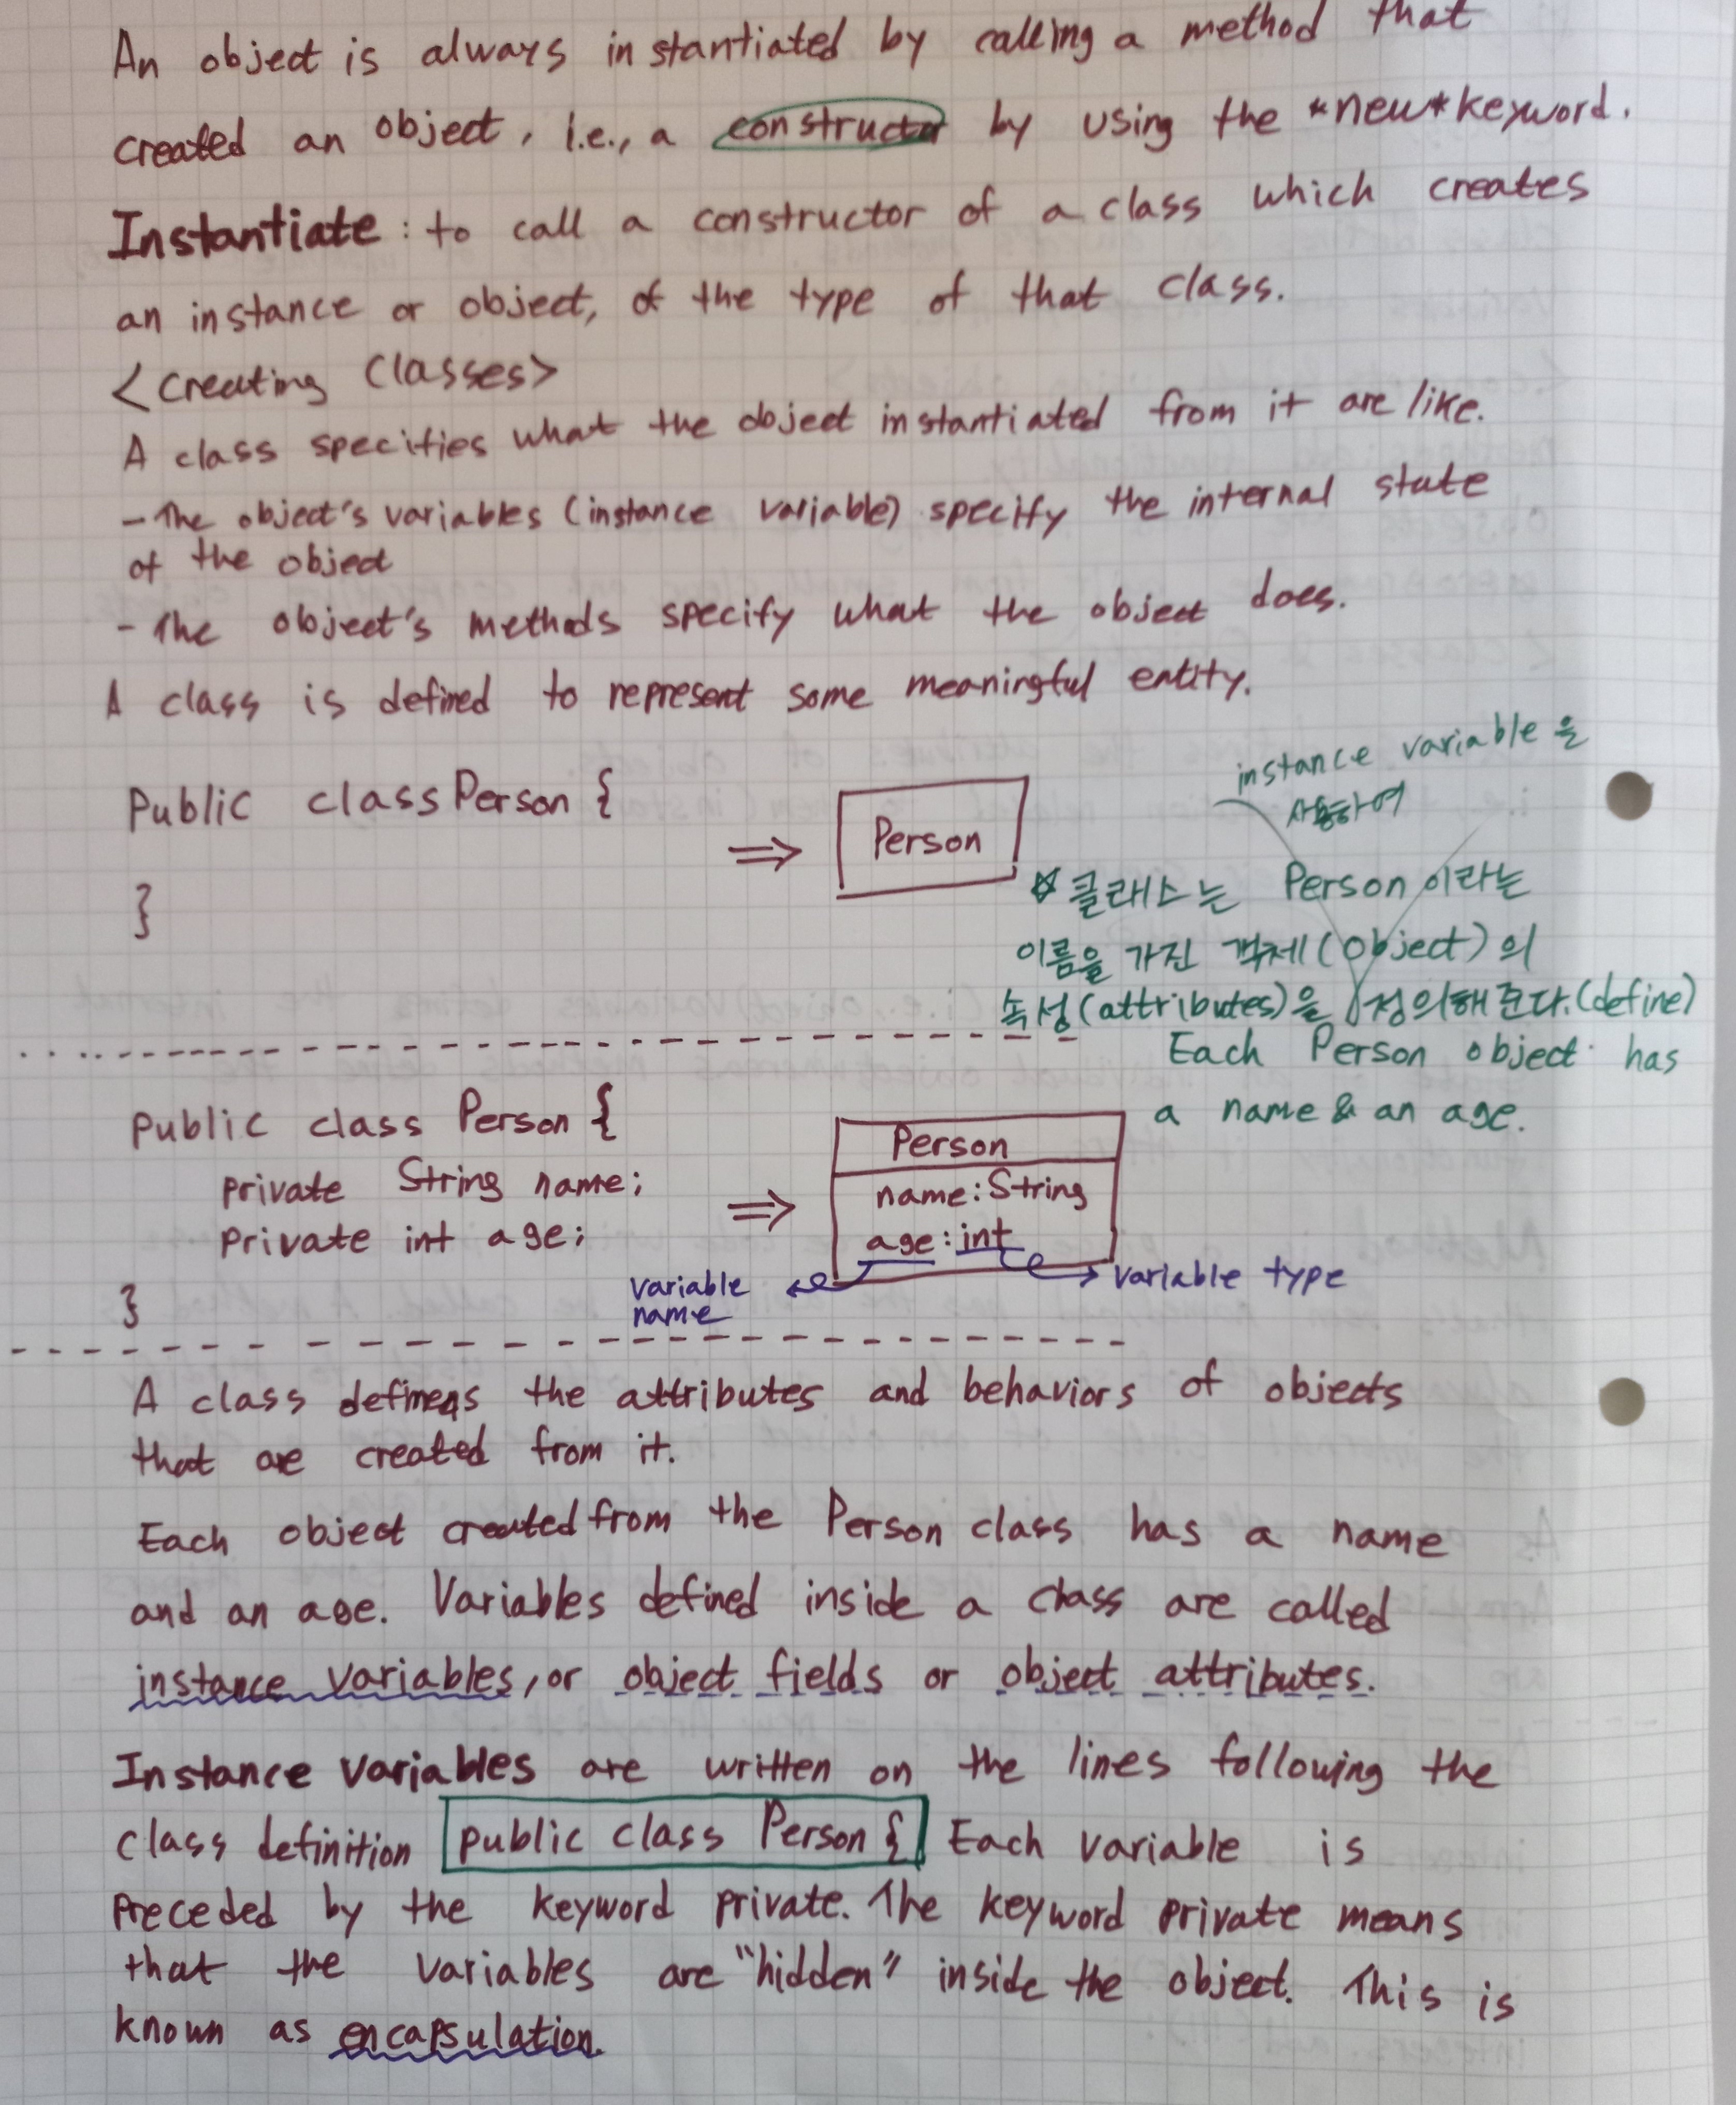 An object is always instantiated by calling a method that
created an object, i.e., a constructor by using the *new* keyword.
Instantiate : to call a constructor of a class which creates
an instance or object, of the type of that class.
<Creating Classes>
A class specifies what the object instantiated from it are like.
- The object's variables (instance variable) specify the internal state
of the object
- The object's methods specify what the object does.
A class is defined to represent some meaningful entity.
Public class Person {
}
⇒
Person
instance variable을
사용하여
☆ 클래스는 Person이라는
이름을 가진 객체(Object)의
속성(attributes)을 정의해 준다.(define)
Each Person object has
a name & an age.
public class Person {
private String name;
private int age;
}
⇒
Person
name: String
age: int
variable
name
variable type
A class defines the attributes and behaviors of objects
that are created from it.
Each object created from the Person class has a name
and an age. Variables defined inside a class are called
instance variables, or object fields or object attributes.
Instance variables are written on the lines following the
class definition public class Person { Each variable is
preceded by the keyword private. The keyword private means
that the variables are "hidden" inside the object. This is
known as encapsulation.